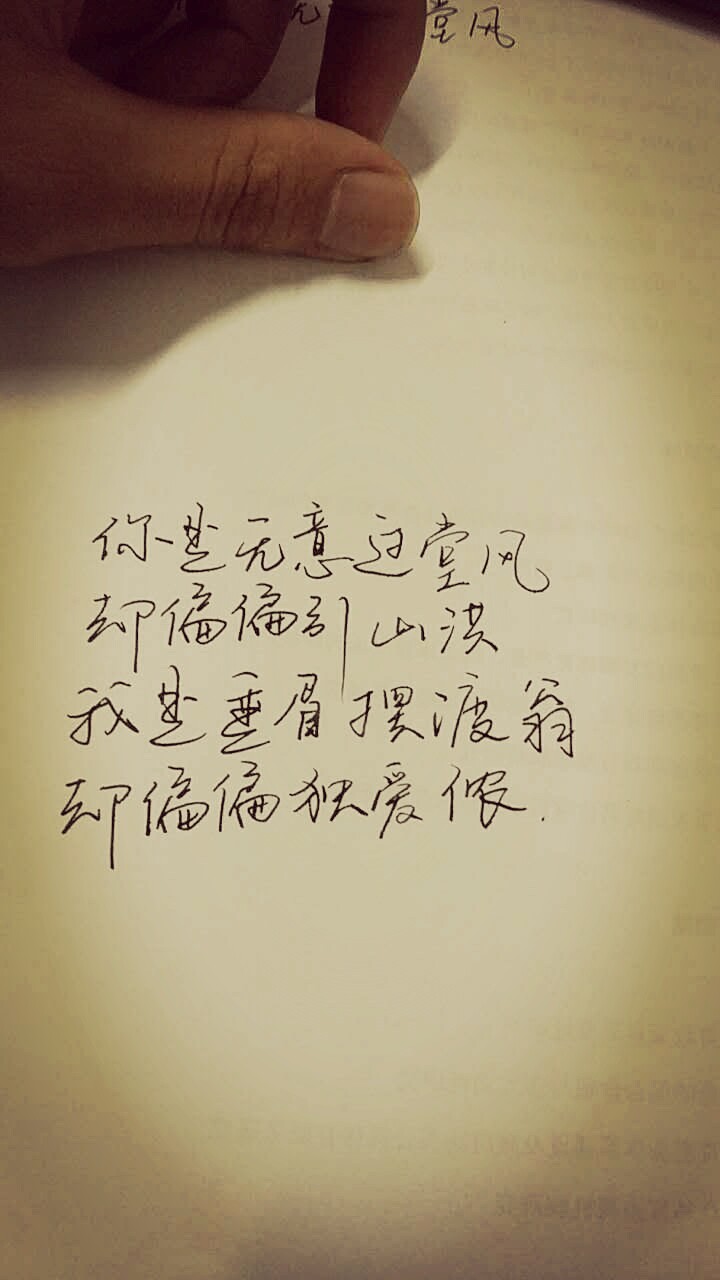 无 堂风
你是无意过堂风
却偏偏引山洪
我是垂眉摆渡翁
却偏偏独爱侬.